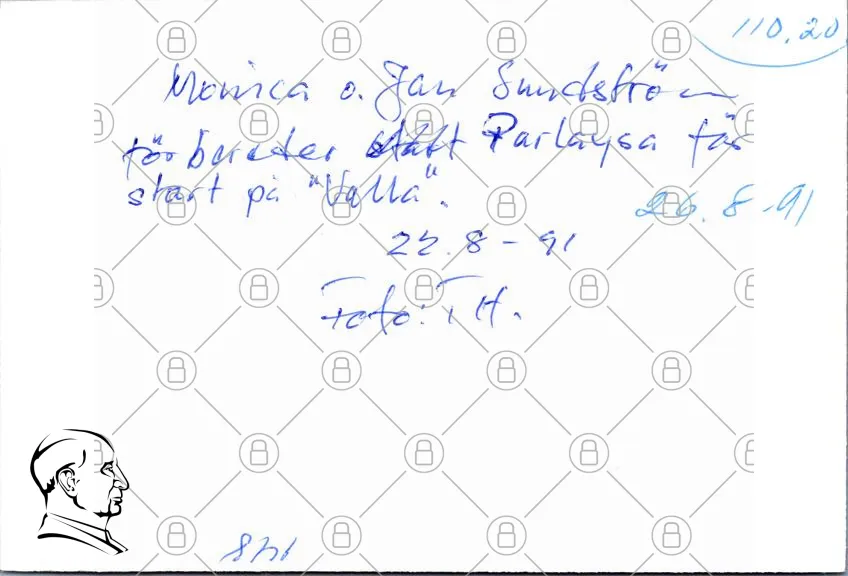 110.20
Monica o. Jan Sundström
förbereder Parlaysa för
start på "Valla".
26.8-91
22.8-91
Foto: TH.